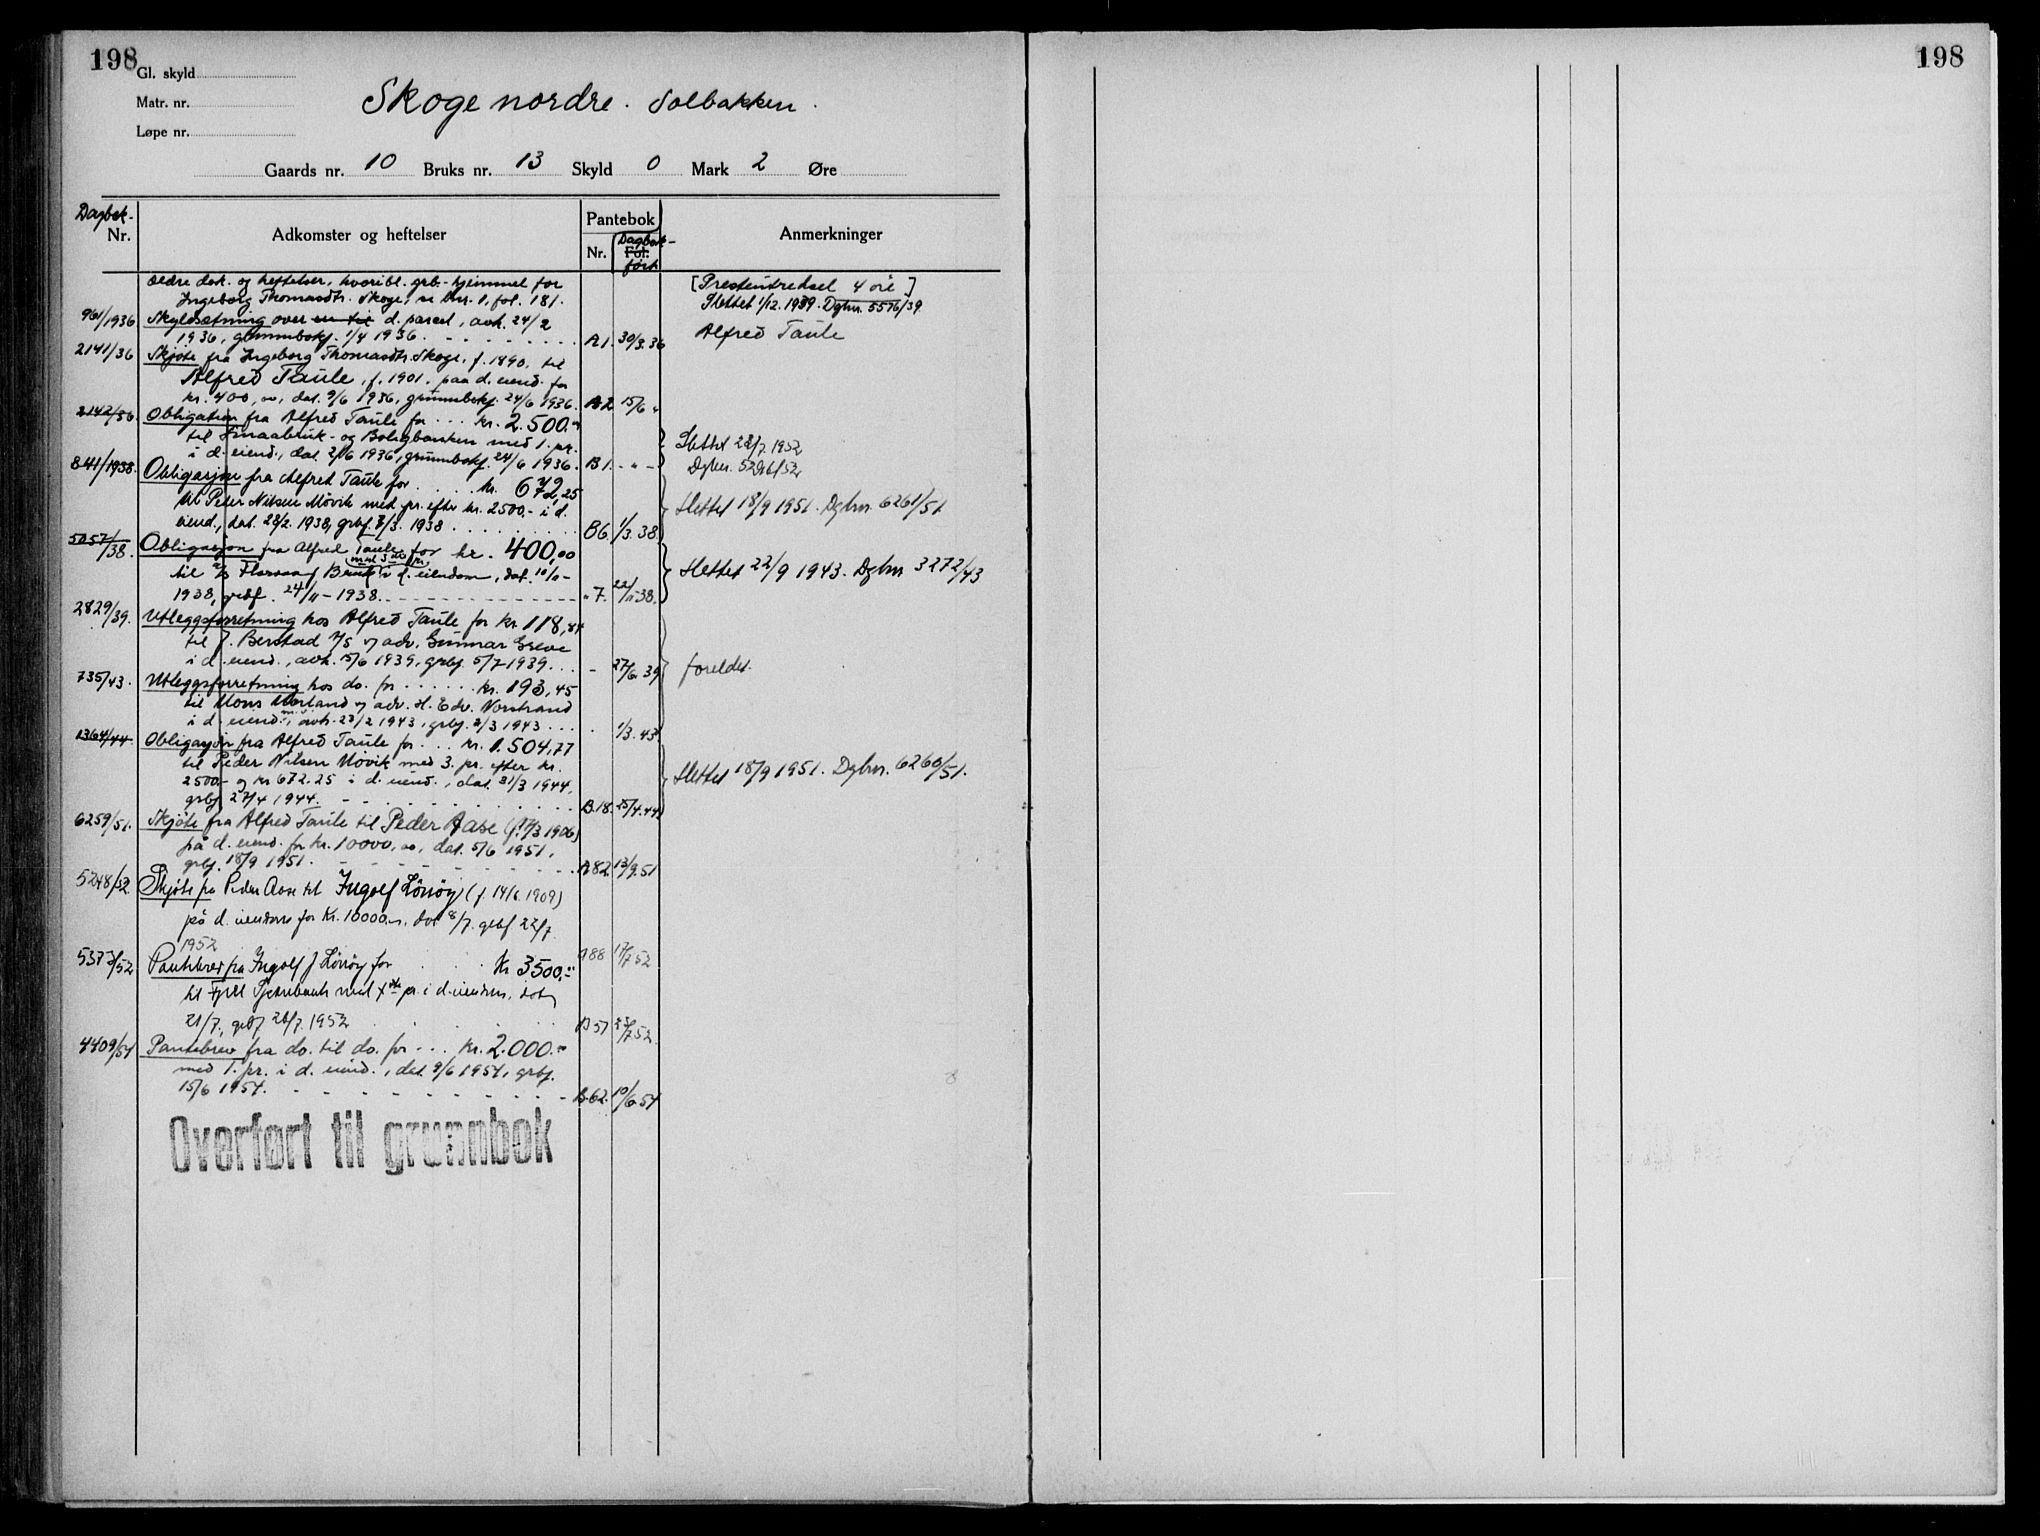 198
198
Gl. skyld
Matr. nr.
Løpe nr.
Skoge nordre. Solbakken.
Gaards nr. 10 Bruks nr. 13 Skyld 0 Mark 2 Øre
Dagbok-
Nr.
Adkomster og heftelser
Pantebok
Nr.
Dagbok-
Fol.
ført
Anmerkninger
Oeldre dok. og heftelser, hvoribl. grb.-hjemmel for
Ingeborg Thomasdtr. Skoge, se bnr. 1, fol. 181.
[Presteutredsel 4 øre]
Slettet 1/12.1939. Dgbnr. 5576/39
961/1936 Skyldsetning over en til d. parcel, avh. 24/2
1936, grunnbokf. 1/4 1936. A1. 30/3.36
Alfred Taule
2141/36 Skjøte fra Ingeborg Thomasdtr. Skoge, f. 1890, til
Alfred Taule, f. 1901, paa d. eiend. for
kr. 400,oo, dat. 9/6 1936, grunnbokf. 24/6 1936. A2 15/6 "
2142/36 Obligation fra Alfred Taule for ... kr. 2.500.-
til Smaabruk- og Boligbanken med 1. pr.
i d. eiend., dat. 2/6 1936, grunnbokf. 24/6 1936. B1. - " -
Slettet 28/7.1952
Dgbnr.
841/1938. Obligasjon fra Alfred Taule for ... kr. 672,25
til Peder Nilsen Mövik med pr. efter kr. 2500,- i d.
eiend., dat. 28/2. 1938, grbf. 7/3. 1938 B6. 1/3.38.
Slettet 18/9 1951. Dgbnr. 6261/51
5057/38. Obligasjon fra Alfred Taule for kr. 400,oo
til a/s Florvaag Bruk med 3die pr. i d. eiendom, dat. 10/11-
1938, grbf. 24/11-1938. " 7. 22/11-38.
Slettet 22/9 1943. Dgbnr 3272/43
2829/39. Utleggsforretning hos Alfred Taule for kr. 118,84
til J. Berstad A/S v/ adv. Gunnar Greve
i d. eiend., avh. 15/6 1939, grbf. 5/7 1939. ... - 27/6.39
foreldet.
735/43. Utleggsforretning hos do. for ...... kr. 193,45
til Mons v/ adv. H. Edv. Norstrand
i d. eiend. m., avh. 23/2 1943, grbf. 2/3 1943 ... 1/3.43
1364/44 Obligasjon fra Alfred Taule for ... kr. 1.504,77
til Peder Nilsen Mövik med 3. pr. efter kr.
2500,- og kr 672.25 i d. eiend., dat. 31/3 1944,
grbf. 27/4 1944. B.18. 25/4.44
Slettet 18/9 1951. Dgbnr. 6260/51.
6259/51. Skjøte fra Alfred Taule til Peder Aase
på d. eiend. for kr. 10000,oo, dat. 5/6 1951,
grbf. 18/9 1951. A82 13/9.51
5248/52 Skjøte fra Peder Aase til Ingolf Lönöy (f. 14/6.1909)
på d. eiendom for Kr. 10000.-, dat 8/7. grbf 22/7
1952 A88 17/7 52
5373/52 Pantebrev fra Ingolf J Lönöy for Kr 3500.-
til Fjell Sparebank med 1ste pr. i d. eiendom, dat
21/7., grbf 28/7.1952 B57 25/7 52.
4409/54 Pantebrev fra do. til do. for ... kr. 2.000.-
med 1. pr. i d. eiend., dat. 9/6 1954, grbf.
15/6 1954. B.62. 10/6.54
Overført til grunnbok